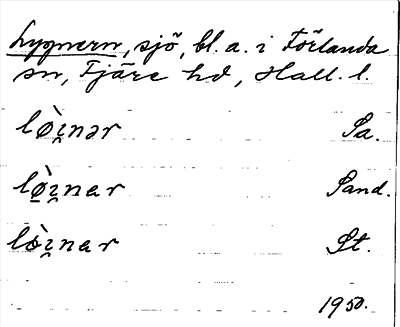 Lygnern, sjö, bl. a. i Förlanda
sn, Fjäre hd, Hall. l.
lø̀i̯nər Sa.
lø̱̀i̯nar Sand.
lö̀i̯nar St.
1950.